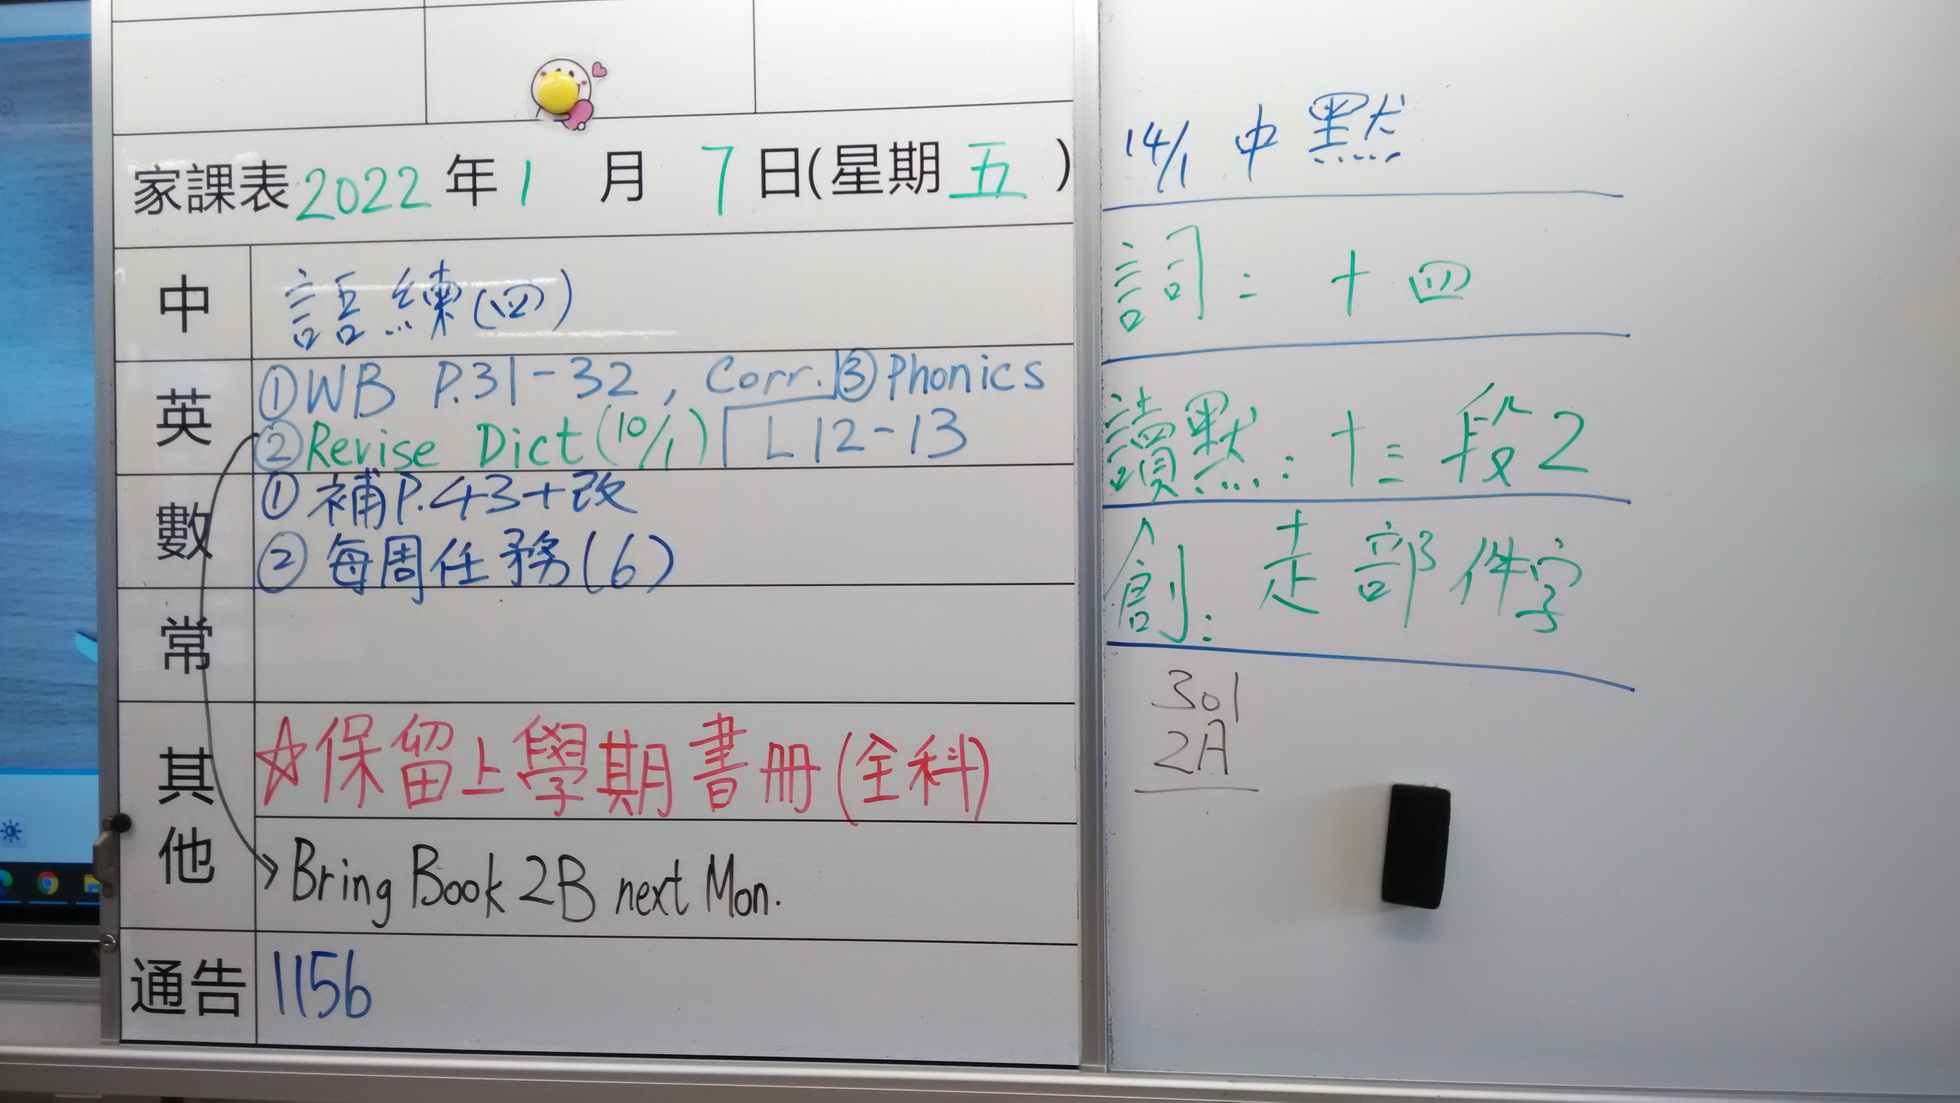 家課表 2022年1月7日(星期五)
中 語練(四)
英 ①WB P.31-32, Corr. ③Phonics
②Revise Dict (10/1) L12-13
數 ①補P.43+改
②每周任務(6)
常
其他 ☆保留上學期書冊(全科)
→Bring Book 2B next Mon.
通告 1156
14/1 中默
詞: 十四
讀默: 十三段2
創: 走部件字
301
2A